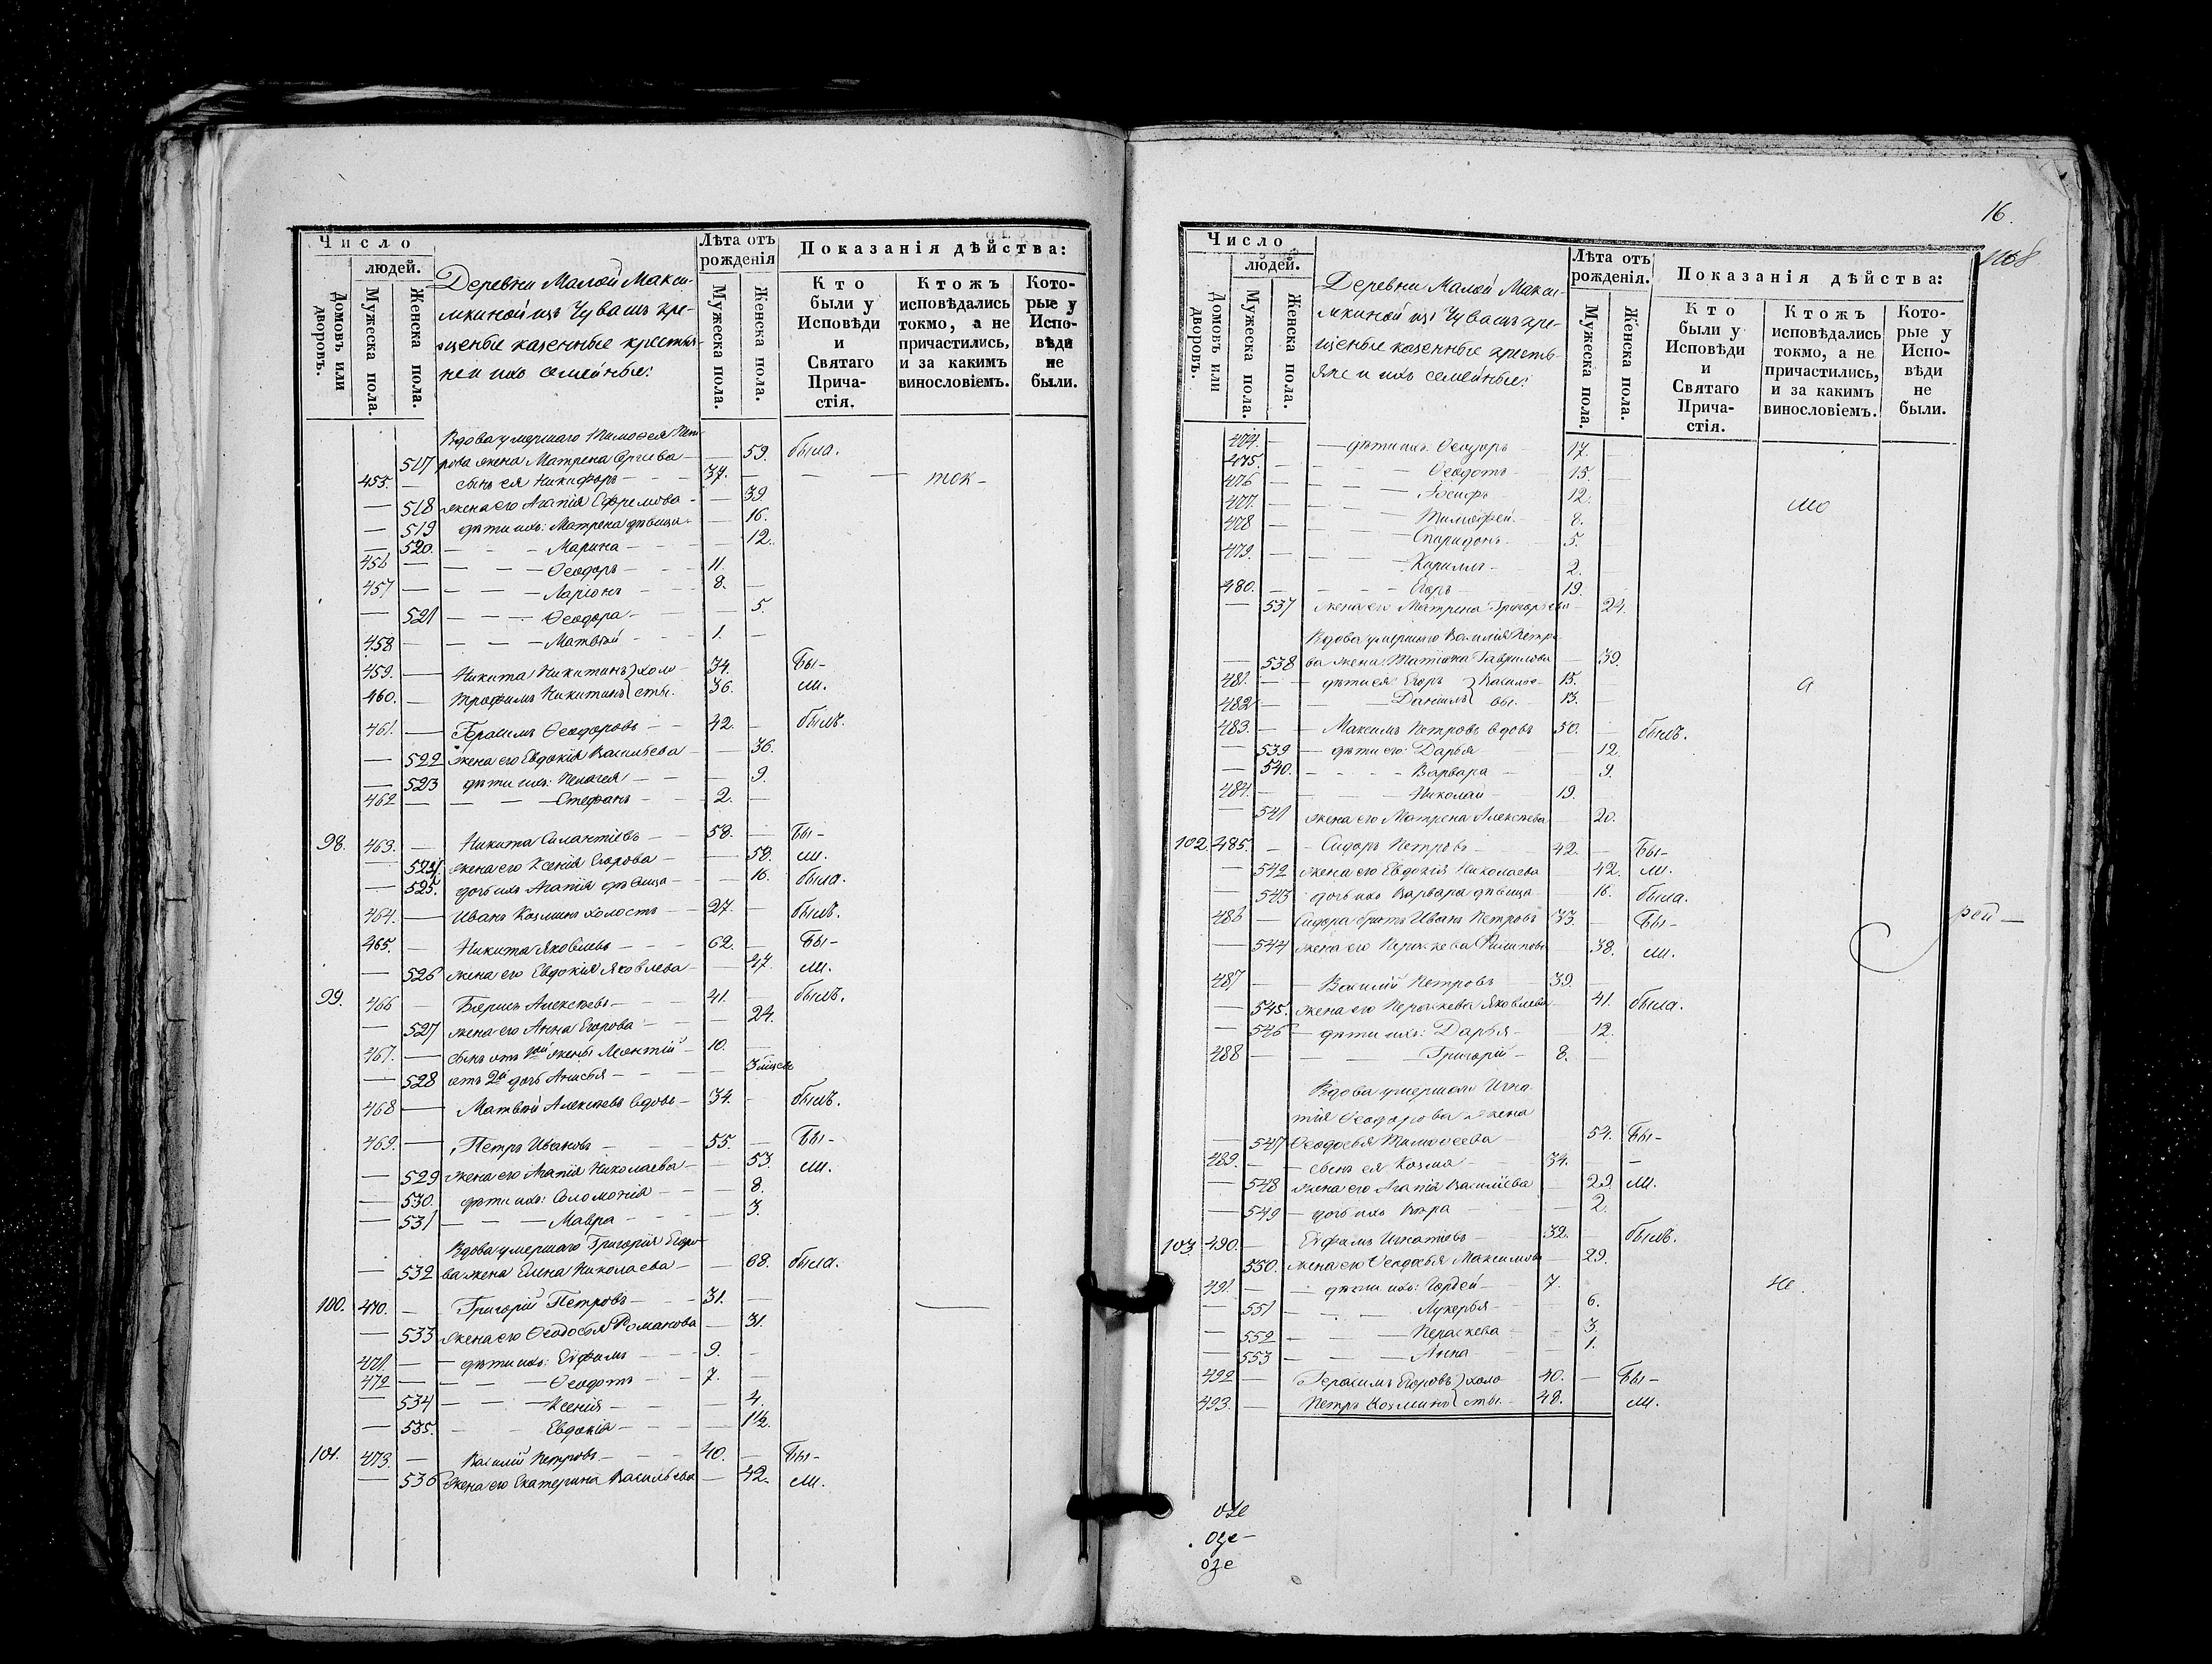 Число
людей.
Домовъ или дворовъ.
Мужеска пола.
Женска пола.
Деревни Малой Макси-
мкиной изъ Чувашъ кре-
щеные казенные крестья-
не и ихъ семейные:
Лѣта отъ рожденія
Мужеска пола.
Женска пола.
Показанія дѣйства:
Кто были у Исповѣди и Святаго Прича- стія.
Ктожъ исповѣдались токмо, а не причастились, и за какимъ винословіемъ.
Кото- рые у Испо- вѣди не были.
Вдова умершаго Тимоѳея Пет-
517 рова жена Матрена Сергѣева — 59. была.
455. — сынъ ея Никифоръ — 37. — ток-
— 518 жена его Агапія Ефремова — 39.
— 519 дѣти ихъ: Матрена дѣвица — 16.
— 520. Марина — 12.
456 — Ѳеодоръ — 11.
457 — Ларіонъ — 8.
— 521 Ѳеодора — 5.
458 — Матвѣй — 1.
459. — Никита Никитинъ холо- 34. Бы-
460. — Трофимъ Никитинъ сты. 36. ли.
461. — Герасимъ Ѳеодоровъ — 42. былъ.
— 522 жена его Евдокія Васильева — 36.
— 523 дѣти ихъ: Пелагея — 9.
462 — Стефанъ — 2.
98. 463. — Никита Силантіевъ — 58. Бы-
— 524 жена его Ксенія Егорова — 58. ли.
— 525. дочь ихъ Агапія дѣвица — 16. была.
464. — Иванъ Козминъ холостъ — 27. былъ.
465. — Никита Яковлевъ — 62. Бы-
— 526 жена его Евдокія Яковлева — 47. ли.
99. 466 — Борисъ Алексѣевъ — 41. былъ.
— 527 жена его Анна Егорова — 24.
467. — сынъ отъ 1ой жены Леонтій — 10.
— 528 отъ 2й дочь Анисья — 3 мѣсец
468 — Матвѣй Алексѣевъ вдовъ — 34. былъ.
469. — Петръ Ивановъ — 55. Бы-
— 529 жена его Агапія Николаева — 53. ли.
— 530. дѣти ихъ: Соломонія — 8.
— 531 Мавра — 3.
Вдова умершаго Григорія Егоро-
— 532 ва жена Елена Николаева — 68. была.
100. 470. — Григорій Петровъ — 31.
— 533 жена его Ѳеодосья Романова — 31.
471. — дѣти ихъ: Ефимъ — 9.
472 — Ѳеодотъ — 7.
— 534 Ксенія — 4.
— 535. Евдокія — 1½.
101. 473. — Василій Петровъ — 40. Бы-
— 536 жена его Екатерина Васильева — 42. ли.
16.
Число
людей.
Домовъ или дворовъ.
Мужеска пола.
Женска пола.
Деревни Малой Макси-
мкиной изъ Чувашъ кре-
щеные казенные кресть-
яне и ихъ семейные:
Лѣта отъ рожденія.
Мужеска пола.
Женска пола.
Показанія дѣйства:
Кто были у Исповѣди и Святаго Прича- стія.
Ктожъ исповѣдались токмо, а не причастились, и за какимъ винословіемъ.
Кото- рые у Испо- вѣди не были.
474. — дѣти ихъ: Ѳеодоръ — 17.
475. — Ѳеодотъ — 15.
476 — Іосифъ — 12.
477. — Тимоѳей — 8. мо
478 — Спиридонъ — 5.
479. — Кириллъ — 2.
480. — Егоръ — 19.
— 537 жена его Матрена Григорьева — 24.
Вдова умершаго Василія Петро-
— 538 ва жена Татіана Гаврилова — 39.
481. — дѣти ея Егоръ Василье- 15. а
482 — Даніилъ вы. 13.
483. — Максимъ Петровъ вдовъ 50. былъ.
— 539 дѣти его: Дарья — 12.
— 540. Варвара — 9.
484. — Николай — 19.
— 541 жена его Матрена Алексѣева — 20.
102. 485. — Сидоръ Петровъ — 42. Бы-
— 542 жена его Евдокія Николаева 42. ли.
— 543 дочь ихъ Варвара дѣвица — 16. была.
486 — Сидора братъ Иванъ Петровъ 33. Бы- рей —
— 544 жена его Параскева Филипова 38. ли.
487 — Василій Петровъ 39.
— 545. жена его Параскева Яковлева 41. была.
— 546 дѣти ихъ: Дарья — 12.
488 — Григорій — 8.
Вдова умершаго Игна-
тія Ѳеодорова жена
— 547 Ѳеодосья Тимоѳеева — 54. Бы-
489. — сынъ ея Козма — 34.
— 548 жена его Агапія Васильева 29. ли.
— 549 дочь ихъ Вѣра — 2.
103. 490. — Ефимъ Игнатіевъ — 32. былъ.
— 550. жена его Ѳеодосья Максимова 29.
491. — дѣти ихъ: Гордей — 7. не.
— 551 Лукерья — 6.
— 552 Параскева — 3.
— 553 Анна — 1.
492 — Герасимъ Егоровъ холо- 40. Бы-
493. — Петръ Козминъ сты. 48. ли.